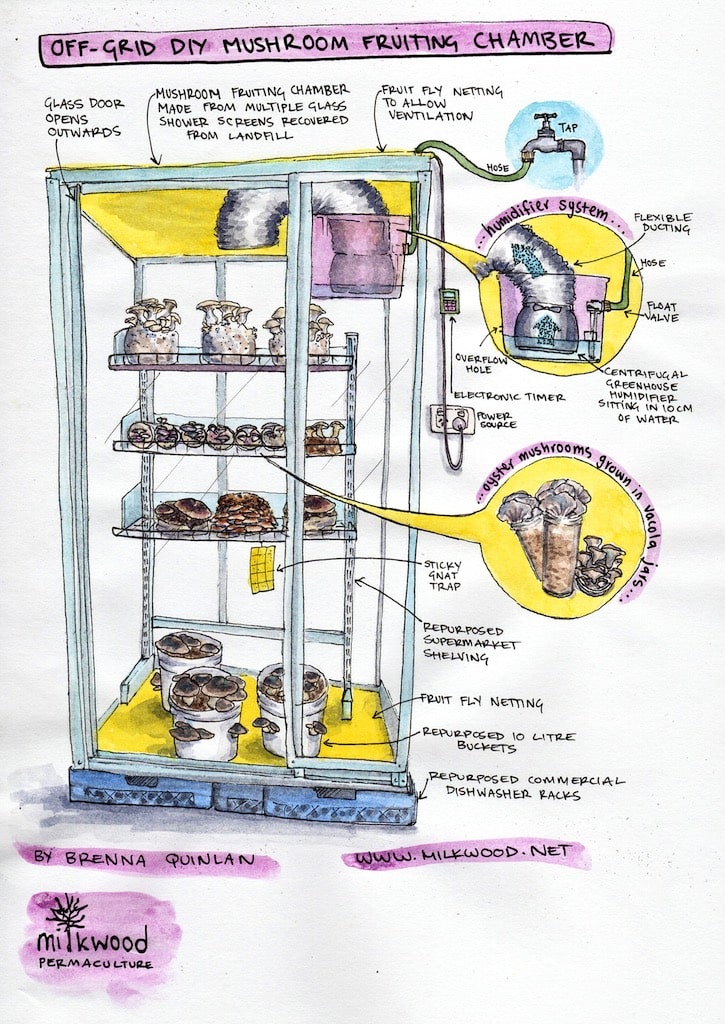 OFF-GRID DIY MUSHROOM FRUITING CHAMBER
GLASS DOOR
OPENS
OUTWARDS
MUSHROOM FRUITING CHAMBER
MADE FROM MULTIPLE GLASS
SHOWER SCREENS RECOVERED
FROM LANDFILL
FRUIT FLY NETTING
TO ALLOW
VENTILATION
HOSE
TAP
...humidifier system...
FLEXIBLE
DUCTING
HOSE
FLOAT
VALVE
OVERFLOW
HOLE
CENTRIFUGAL
GREENHOUSE
HUMIDIFIER
SITTING IN 10CM
OF WATER
ELECTRONIC TIMER
POWER
SOURCE
...oyster mushrooms grown in vacola jars...
STICKY
GNAT
TRAP
REPURPOSED
SUPERMARKET
SHELVING
FRUIT FLY NETTING
REPURPOSED 10 LITRE
BUCKETS
REPURPOSED COMMERCIAL
DISHWASHER RACKS
BY BRENNA QUINLAN
WWW.MILKWOOD.NET
milkwood
PERMACULTURE